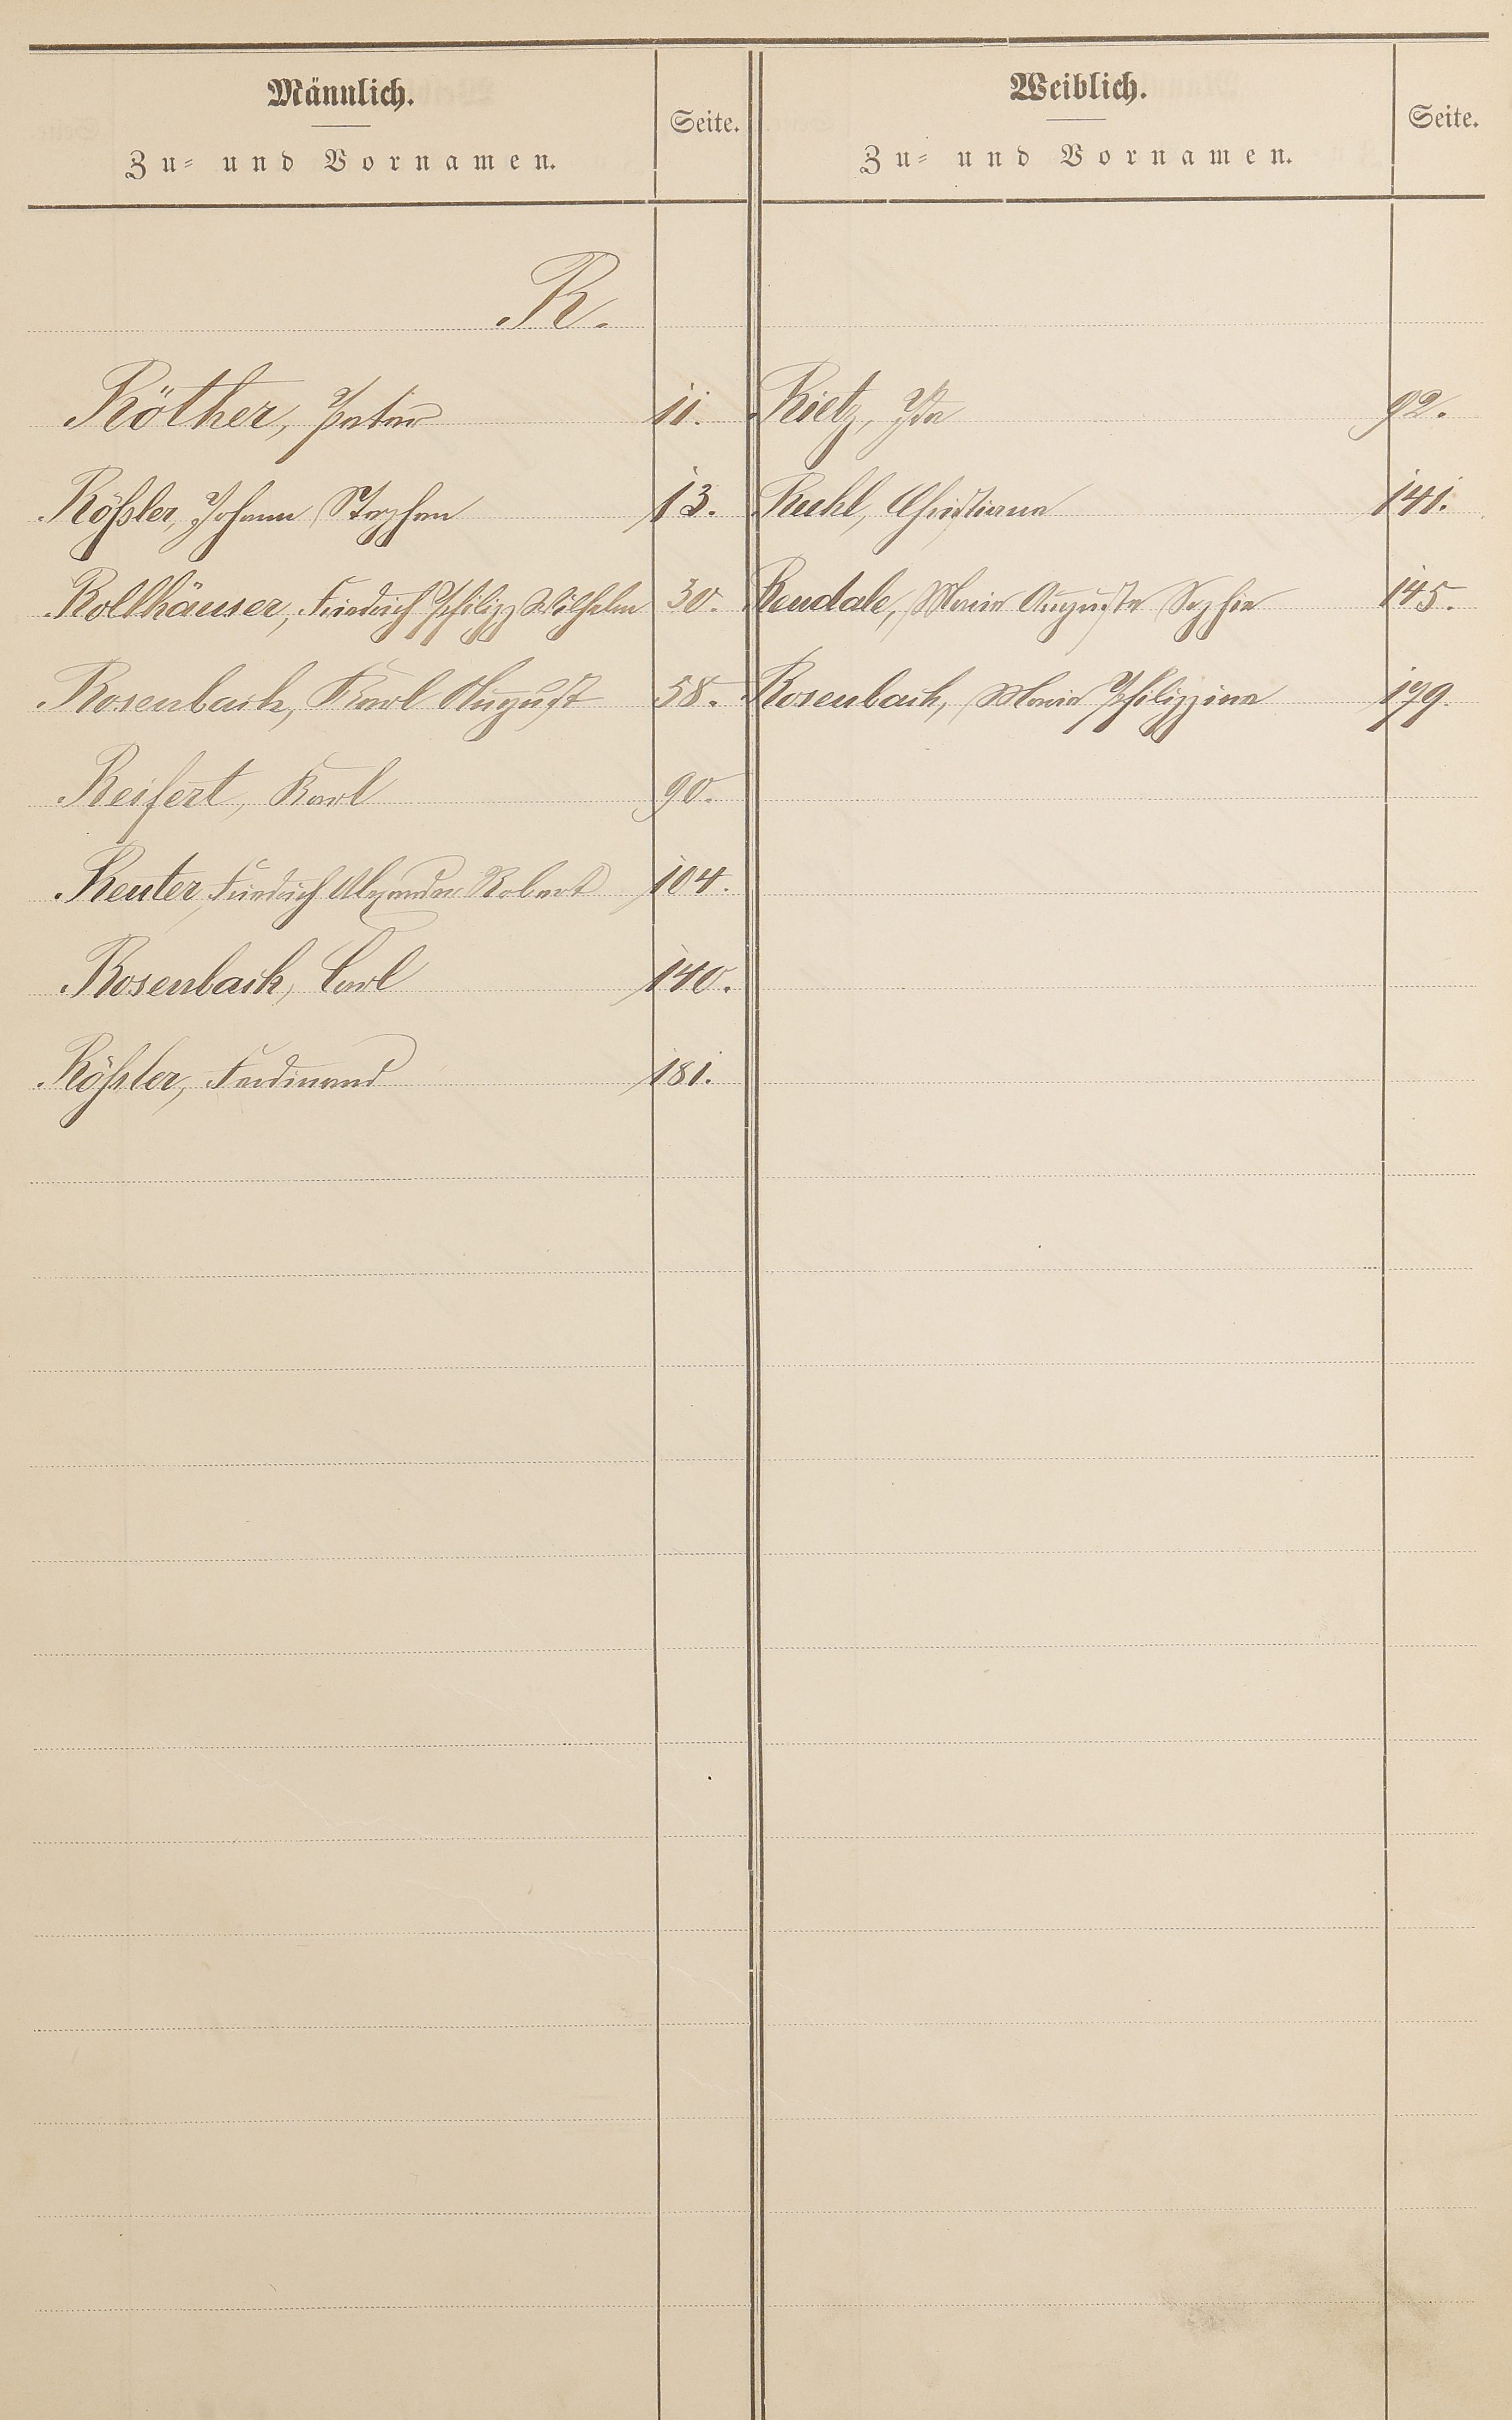 Männlich.
Zu- und Vornamen.
Seite.
Weiblich.
Zu- und Vornamen.
Seite.
R.
Röther, Peter 11. Rietz, Ida 92.
Rößler, Johann Stephan 13. Ruhl, Christiane 141.
Rollhäuser, Friedrich Philipp Wilhelm 30. Rendale, Marie Auguste Sophie 145.
Rosenbach, Karl August 58. Rosenbach, Marie Philippine 179.
Reifert, Karl 90.
Reuter, Friedrich Alexander Robert 104.
Rosenbach, Carl 140.
Rößler, Ferdinand 181.